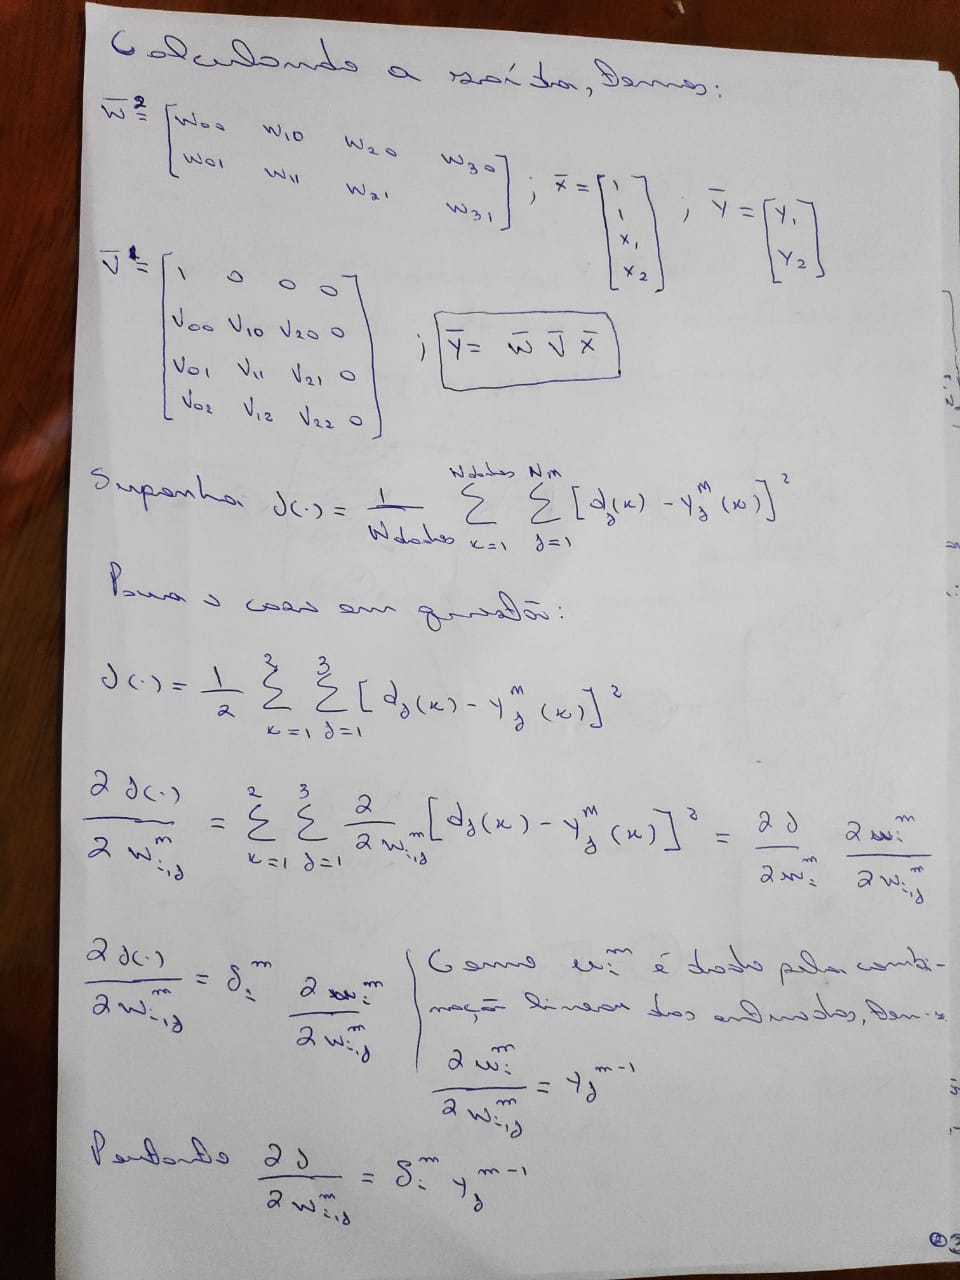 Calculando a saída, temos:
W̄² = [W00 W10 W20 W30; W01 W11 W21 W31] ; x̄ = [1; 1; x1; x2] ; ȳ = [y1; y2]
V̄¹ = [1 0 0 0; V00 V10 V20 0; V01 V11 V21 0; V02 V12 V22 0] ; ȳ = W̄ V̄ x̄
Suponha J(·) = 1/Ndados Σ_{k=1}^{Ndados} Σ_{j=1}^{Nm} [d_j(k) - y_j^m(k)]²
Para o caso em questão:
J(·) = 1/2 Σ_{k=1}^{2} Σ_{j=1}^{3} [d_j(k) - y_j^m(k)]²
∂J(·)/∂w_{i,j}^m = Σ_{k=1}^{2} Σ_{j=1}^{3} ∂/∂w_{i,j}^m [d_j(k) - y_j^m(k)]² = ∂J/∂u_i^m ∂u_i^m/∂w_{i,j}^m
∂J(·)/∂w_{i,j}^m = δ_i^m ∂u_i^m/∂w_{i,j}^m
Como u_i^m é dado pela combi-
nação linear das entradas, tem-se
∂u_i^m/∂w_{i,j}^m = y_j^{m-1}
Portanto ∂J/∂w_{i,j}^m = δ_i^m y_j^{m-1}